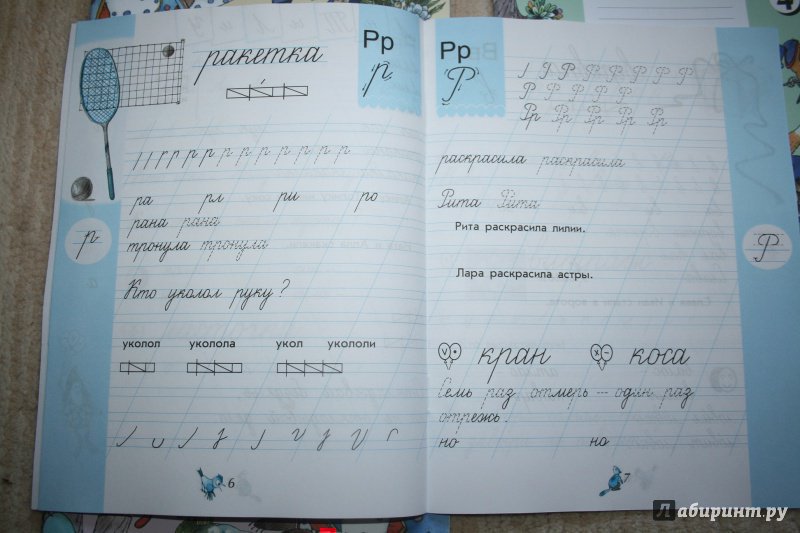 Рр
р
ракетка
р р р р р р р р р р р
ра рл ри ро
рана рана
тронула тронула
р
Кто уколол руку?
уколол уколола укол укололи
6
Рр
Р
Р Р Р Р Р Р Р
Р Р Р Р Р
Рр Рр Рр Рр Рр
раскрасила раскрасила
Рита Рита
Рита раскрасила лилии.
Р
Лара раскрасила астры.
кран коса
Семь раз отмерь — один раз
отрежь.
но но
7
4
Лабиринт.ру